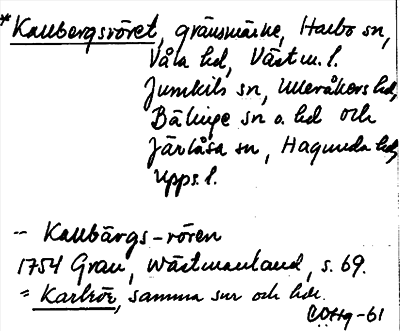 *Kallbergsröret, gränsmärke, Harbo sn,
Våla hd, Västm. l.
Jumkils sn, Ulleråkers hd,
Bälinge sn o. hd och
Järlåsa sn, Hagunda hd,
Upps. l.
-- Kallbärgs-rören
1754 Grau, Wästmanland, s. 69.
= Karlrör, samma snr och hdr.